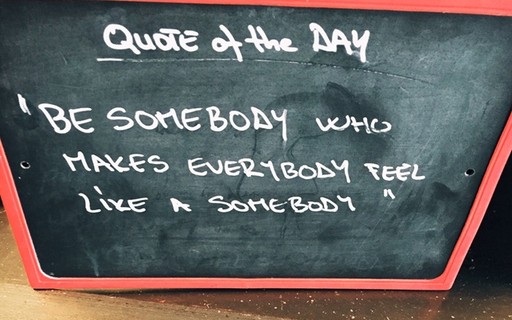 QUOTE of the DAY
"BE SOMEBODY WHO
MAKES EVERYBODY FEEL
LIKE A SOMEBODY"